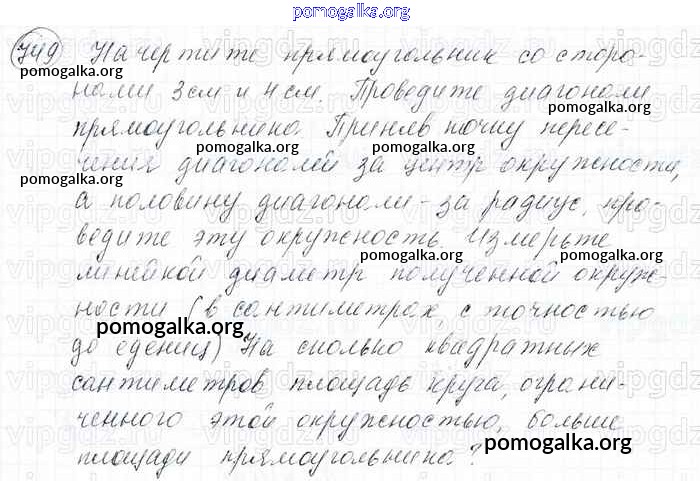 pomogalka.org
749 Начертите прямоугольник со сторо-
pomogalka.org
pomogalka.org
нами 3см и 4см. Проведите диагонали
pomogalka.org
прямоугольника. Приняв точку пересе-
pomogalka.org
чения диагоналей за центр окружности,
pomogalka.org
а половину диагонали - за радиус, про-
ведите эту окружность. Измерьте
pomogalka.org
линейкой диаметр полученной окруж-
ности (в сантиметрах, с точностью
pomogalka.org
до едениц) На сколько квадратных
сантиметров площадь круга, ограни-
ченного этой окружностью, больше
pomogalka.org
площади прямоугольника?